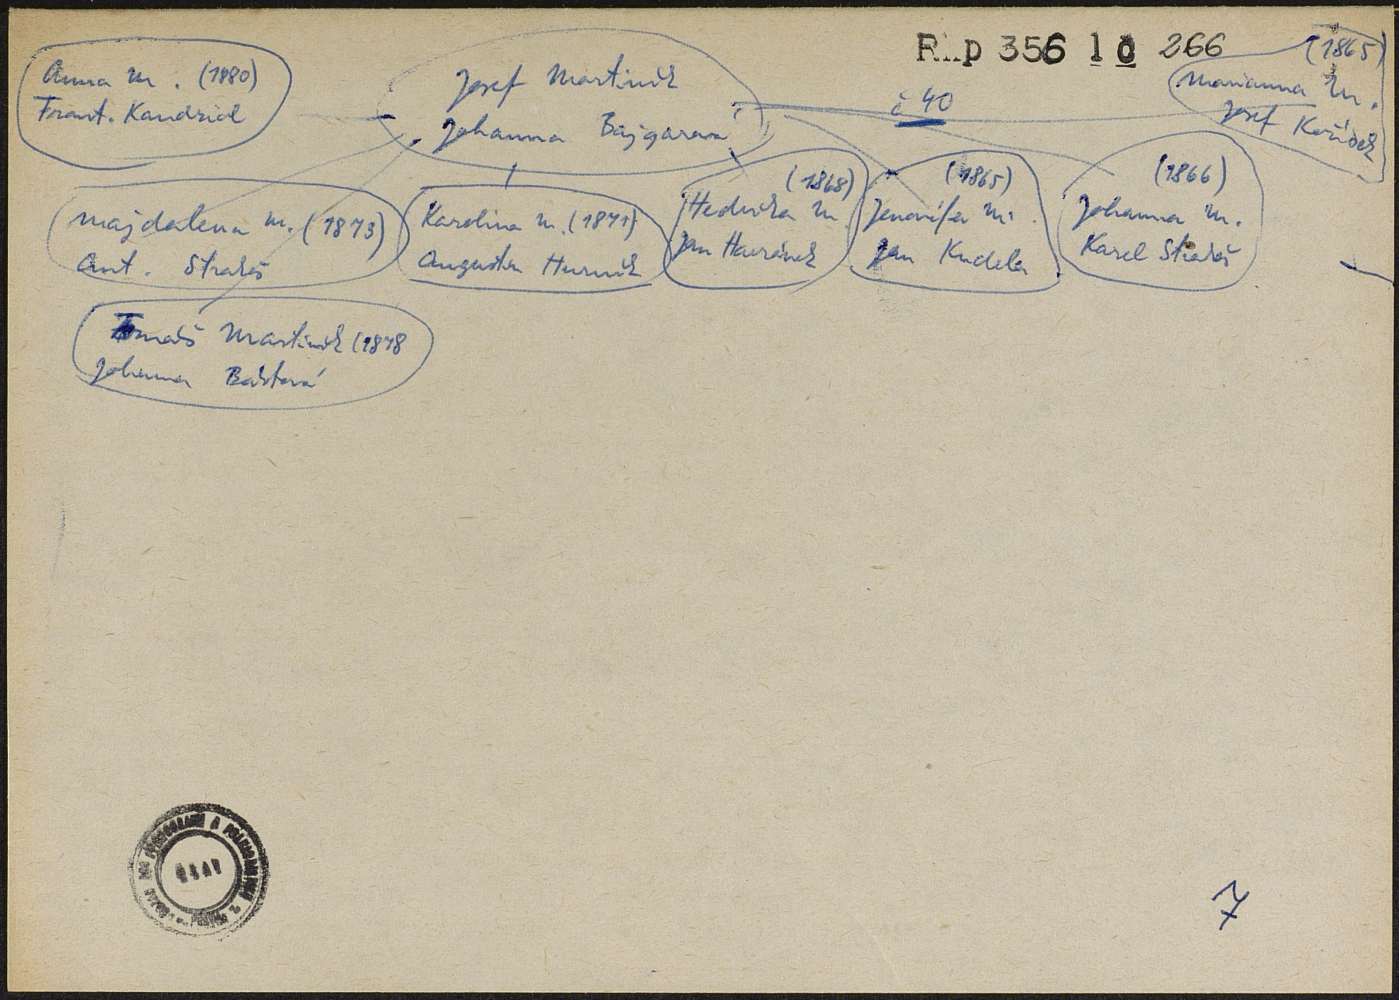 R p 356 10 266
č 40
Anna M. (1880)
Frant. Kandziol
Josef Martiník
Johanna Bajgarová
(1865)
Marianna M.
Josef
Majdalena M. (1873)
Ant. Strakoš
Karolina M. (1871)
Augustin Hurník
(1868)
Hedvika M
Jan Havránek
(1865)
Jenovéfa M.
Jan Kudela
(1866)
Johanna M.
Karel Strakoš
Tomáš Martiník (1878
Johanna Baštová
7